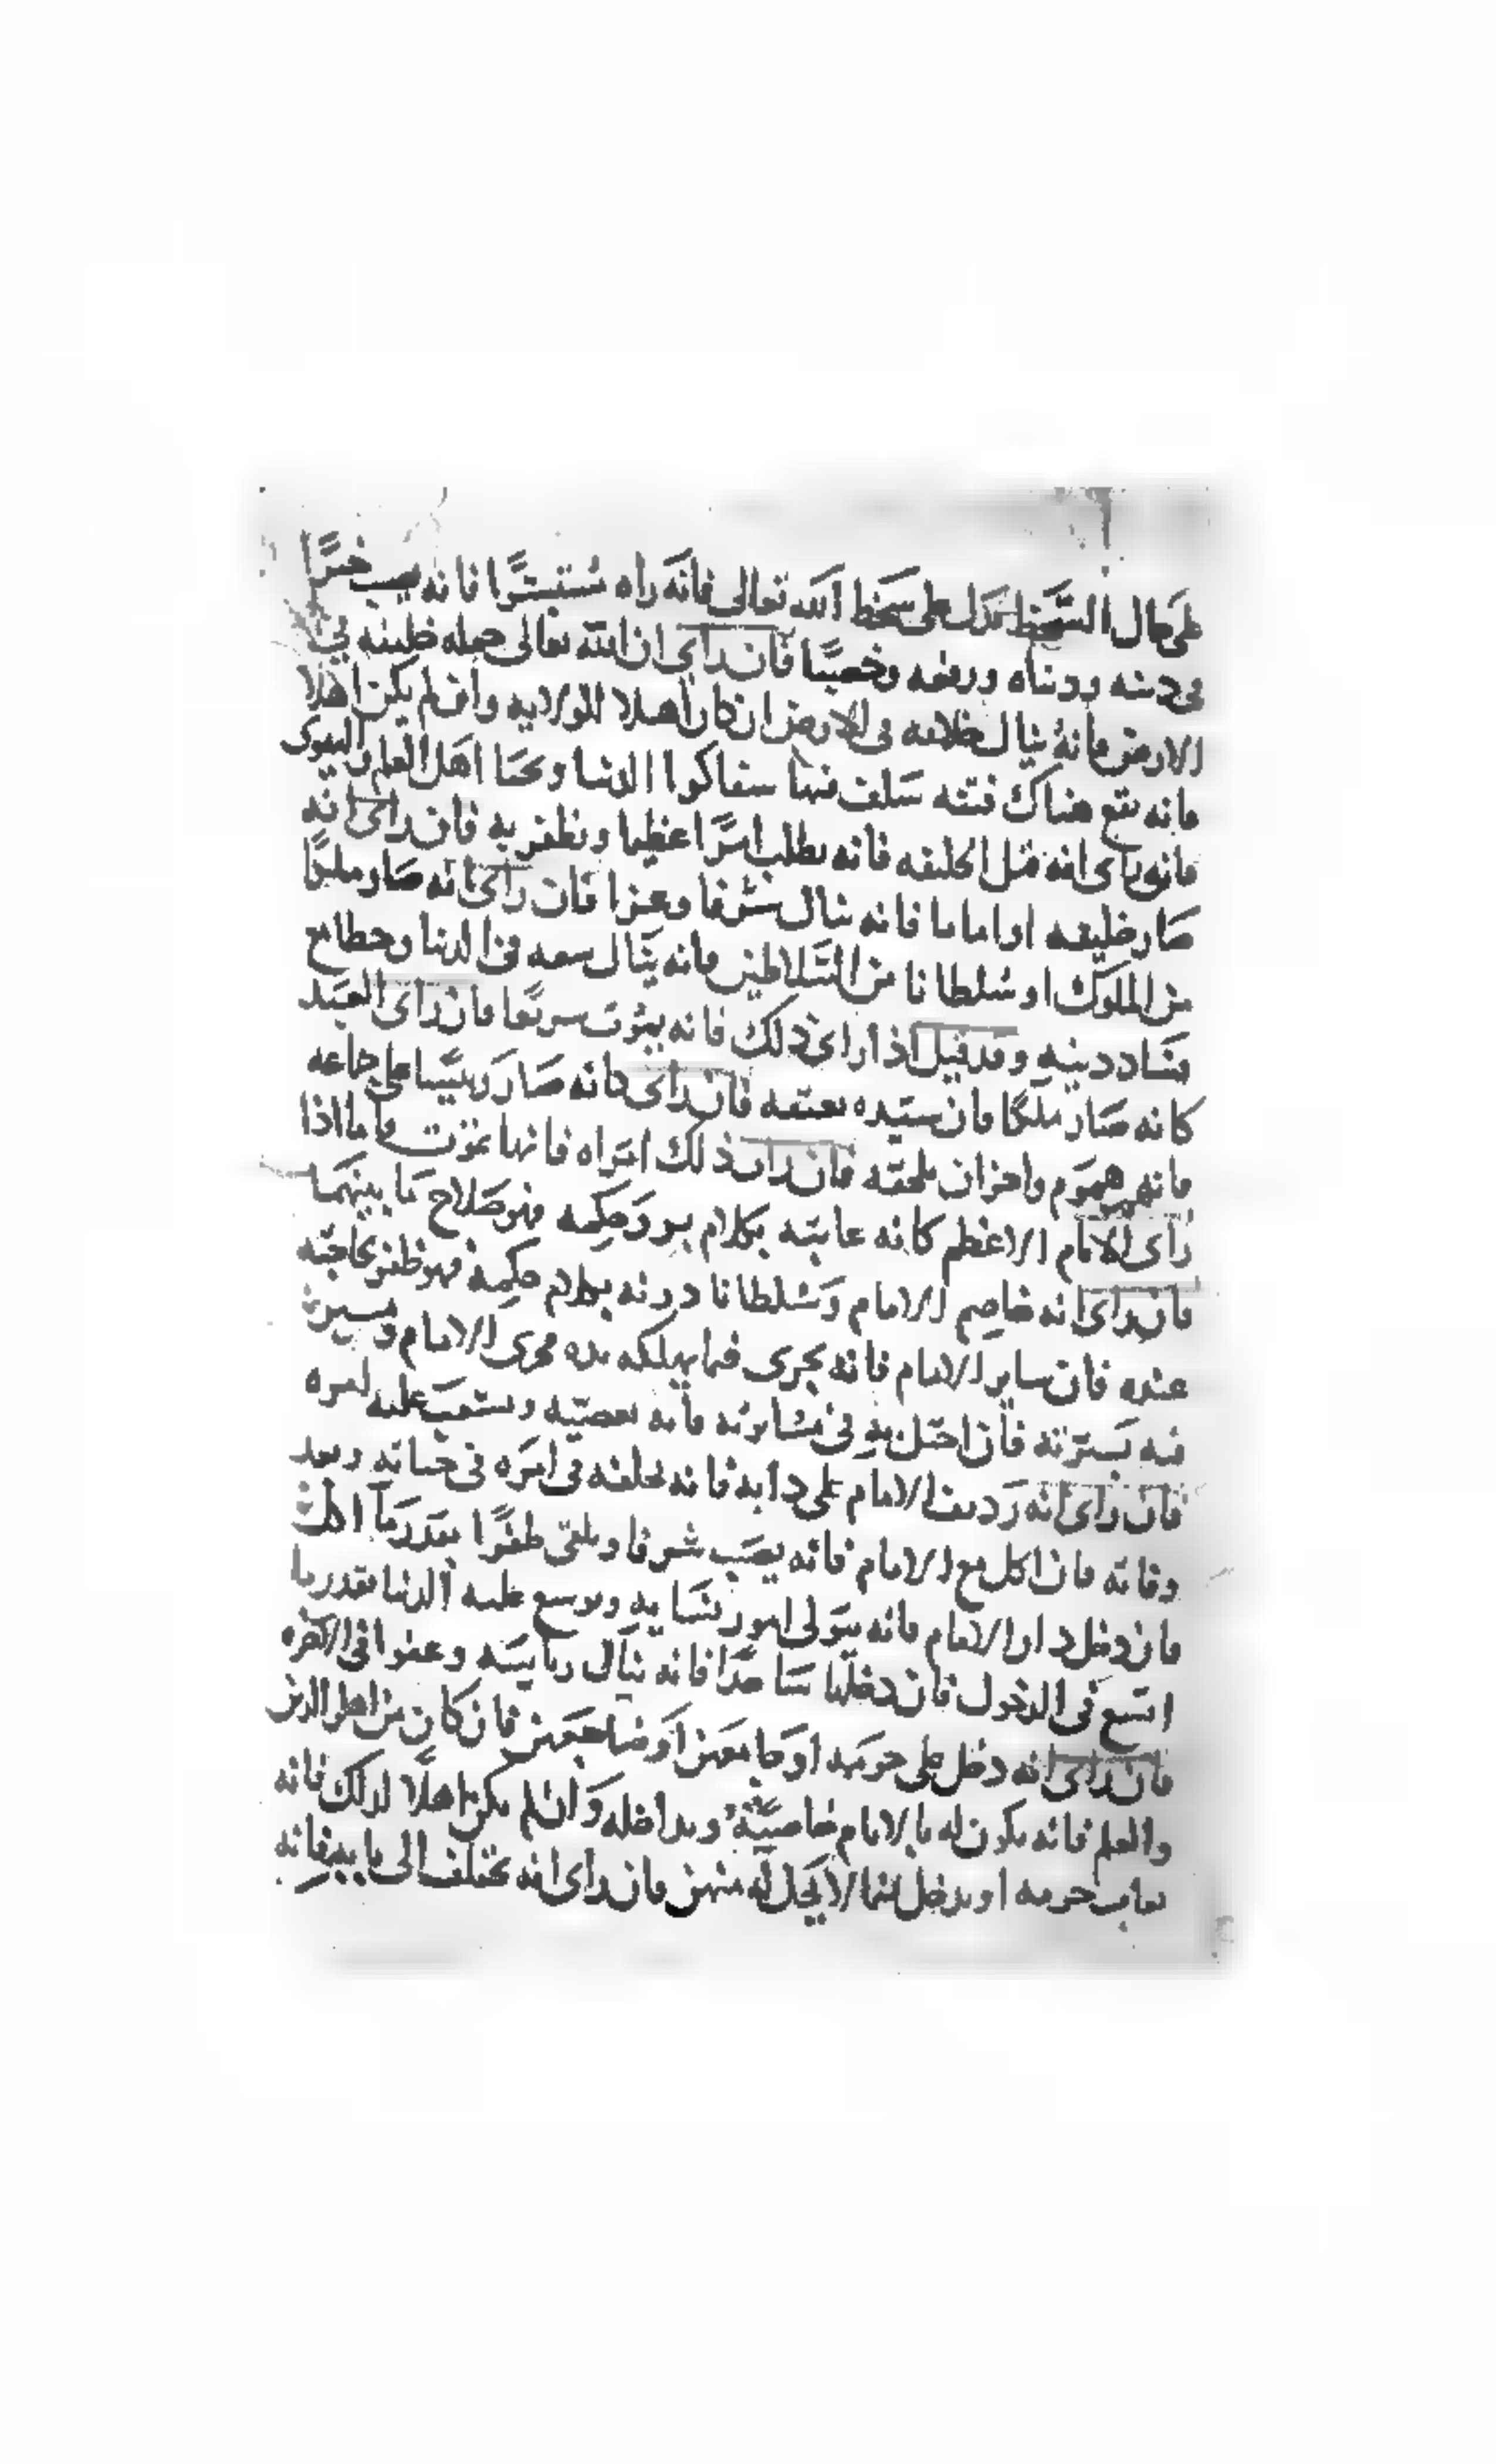 على حال السخط يدل على سخط الله تعالى فانه راه مستبشرا فانه يصيب خيرًا
في دينه ودنياه ورفعه وخصبًا فان راى ان الله تعالى جعله خليفه في
الارض فانه ينال خلافه في الارض ان كان اهلا للولايه وان لم يكن اهلا
فانه يقع هناك فتنه سلف فيها سفاكوا الدنيا ونحا اهل العلم والتقوى
فانه راى انه قتل الخليفه فانه يطلب امرًا عظيما ويظفر به فان راى انه
صار خليفه او اماما فانه ينال شرفا وعزا فان راى انه صار ملكًا
من الملوك او سُلطانا من السَّلاطين فانه ينال سعه في الدنيا وحطام مع
فساد دينهِ وقد قيل اذا راى ذلك فانه يموت سريعًا فان راى العبد
كانه صار ملكًا فان سيده يعتقه فان راى كانه صار رئيسًا على جماعه
فانه هموم واحزان تلحقه فان رات ذلك امراه فانها تموت واما اذا
راى الامام الاعظم كانه عاتبه بكلام بر وحكمه فهو صلاح ما بينهما
فان راى انه خاصم الامام وسُلطانا دونه بكلام حكمه فهو ظفر بحاجته
عنده فان ساير الامام فانه يجرى فيما يملكه يده مجرى الامام ومسيرة
فيه بسيرته فان احتك به في مسايرته فانه يعصيه ويستوجب عليه لعيره
فان راى انه رديف الامام على دابه فانه يخلفه في امره في حياته وبعد
وفاته فان اكل مع الامام فانه يصيب شرفا ويلقى ظفرًا بقدر ما اكل
فان دخل دار الامام فانه يتولى امور نسايه ويوسع عليه الدنيا بقدر ما
اتسع في الدخول فان دخلها ساجدًا فانه ينال رياسه وعفوا في الاخره
فان راى انه دخل على حريمه او جامعهن او ضاجعهن فان كان من اهل الدين
والعلم فانه يكون له بالامام خاصيَّة ويداخله وان لم يكن اهلًا لذلك فانه
يعاب حريمه او يدخل فيما لا يحل له منهن فان راى انه يختلف الى بابه فانه